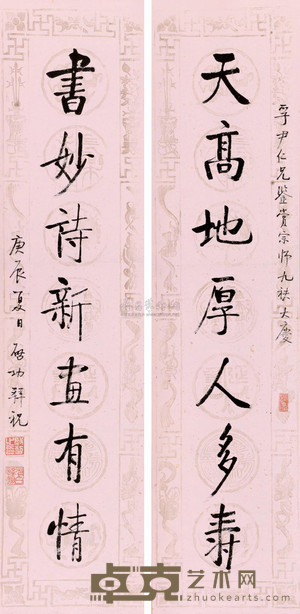 孚尹仁兄鉴赏宗师九秩大庆
天高地厚人多寿
書妙詩新画有情
庚辰夏日启功拜祝
卓克艺术网
www.zhuokearts.com